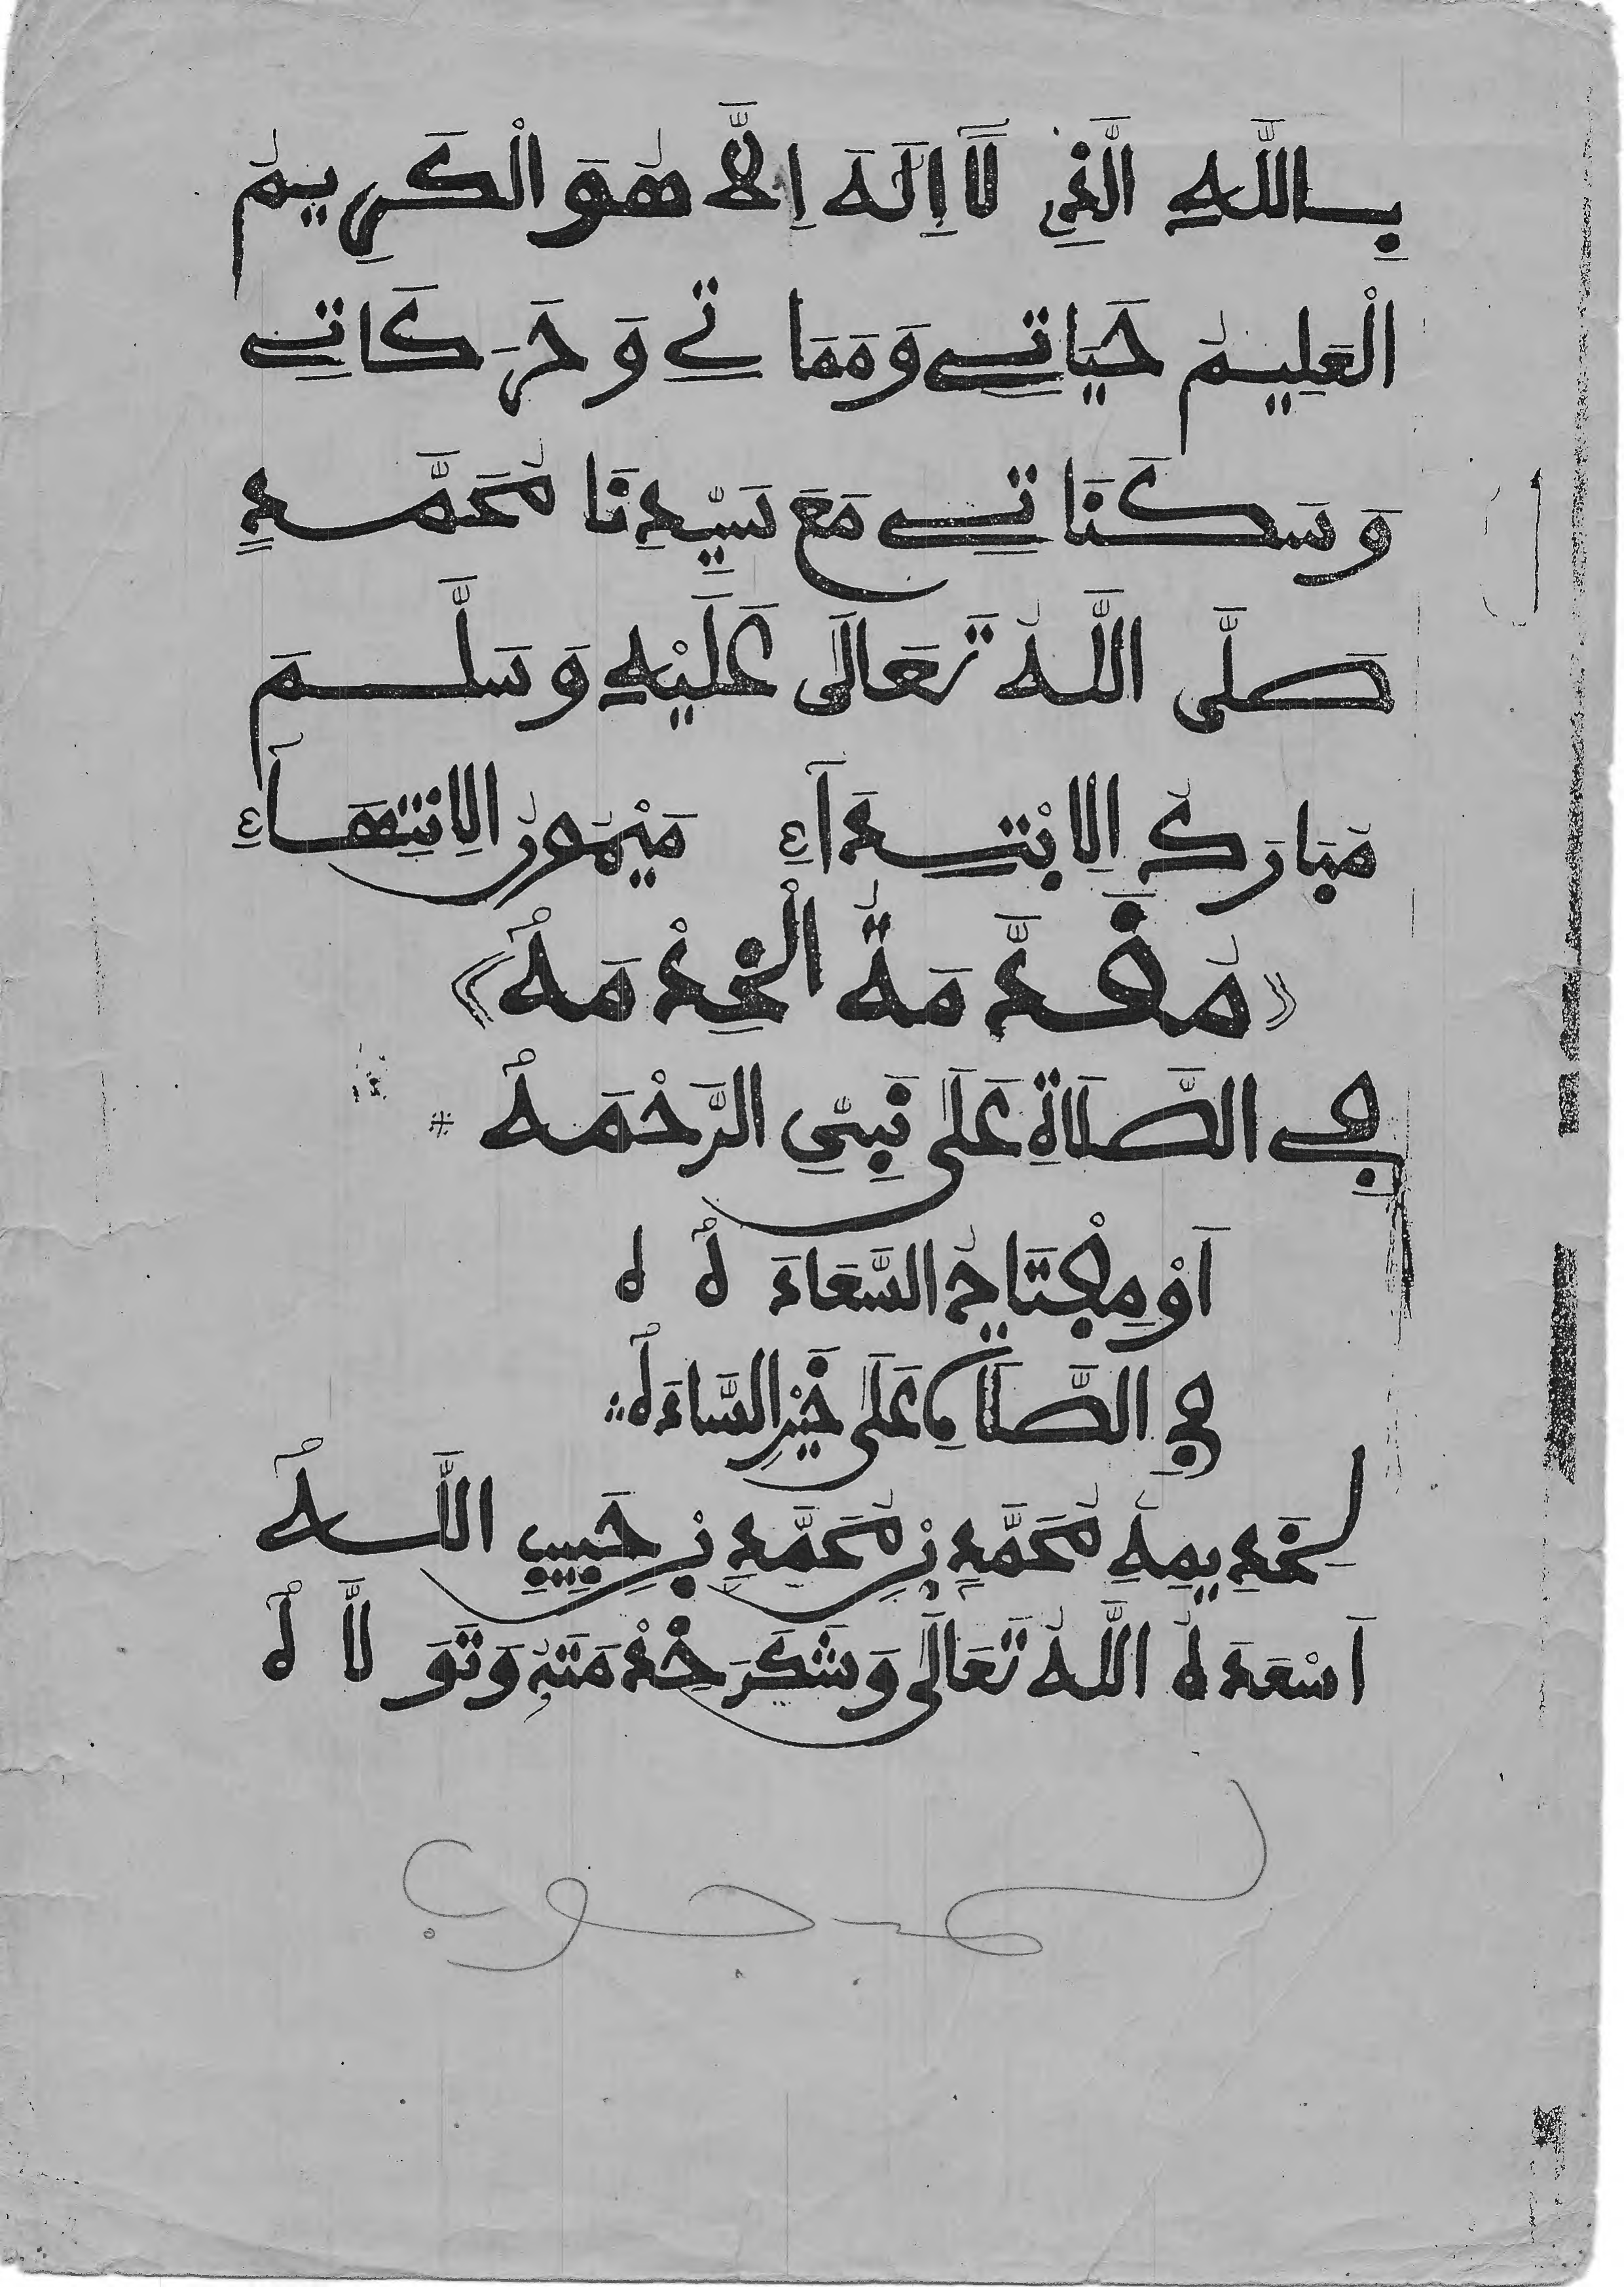 بِاللَّهِ الَّذِي لَا إِلَهَ إِلَّا هُوَ الْكَرِيمُ
الْعَلِيمُ حَيَاتِي وَمَمَاتِي وَحَرَكَاتِي
وَسَكَنَاتِي مَعَ سَيِّدِنَا مُحَمَّدٍ
صَلَّى اللَّهُ تَعَالَى عَلَيْهِ وَسَلَّمَ
مُبَارَكُ الِابْتِدَاءِ مَيْمُونُ الِانْتِهَاءِ
《مُقَدِّمَةُ الْخِدْمَهْ》
فِي الصَّلَاةِ عَلَى نَبِيِّ الرَّحْمَهْ *
أَوْ مِفْتَاحُ السَّعَادَهْ ه
فِي الصَّلَاةِ عَلَى خَيْرِ السَّادَهْ
لِخَدِيمِهِ مُحَمَّدٍ بْنِ مُحَمَّدِ بْنِ حَبِيبِ اللَّهْ
أَسْعَدَهُ اللَّهُ تَعَالَى وَشَكَرَ خِدْمَتَهُ وَتَوَلَّاهْ